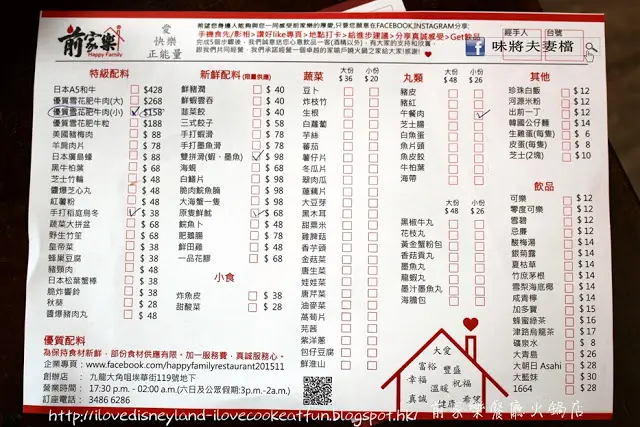 前家樂
Happy Family
愛
快樂
正能量
希望您身邊人能夠與您一同感受前家樂的厚愛,只要您願意在FACEBOOK,INSTAGRAM分享;
手機食先/影相>讚好like專頁>地點打卡>給進步建議>分享真誠感受>Get飲品
經手人
台號
味將夫妻檔
特級配料
日本A5和牛 $428
優質雪花肥牛肉(大) $268
優質雪花肥牛肉(小) $158
優質雪花肥牛粒 $188
美國豬梅肉 $ 88
羊肩肉片 $ 78
日本廣島蠔 $ 88
黑牛柏葉 $ 68
芝士竹輪 $ 48
醬爆芝心丸 $ 48
紅薯粉 $ 48
手打稻庭烏冬 $ 38
蔬菜大拼盆 $ 68
野生竹笙 $ 38
皇帝菜 $ 38
蜂巢豆腐 $ 38
豬頸肉 $ 48
日本松葉蟹棒 $ 38
脆炸響鈴 $ 38
秋葵 $ 28
醬爆豬肉丸 $ 48
新鮮配料 (限量供應)
鮮豬潤 $ 40
鮮蝦雲吞 $ 40
韭菜餃 $ 40
三式餃子 $ 58
手打蝦滑 $ 78
手打墨魚滑 $ 78
雙拼滑(蝦、墨魚) $ 98
海蜆 $ 68
白鱔片 $ 98
脆肉鯇魚腩 $ 98
大海蟹一隻 $ 98
原隻鮮魷 $ 68
鯇魚卜 $ 48
肥鵝腸 $ 78
鮮田雞 $ 48
一品花膠 $ 68
小食
炸魚皮 $ 38
甜酸菜 $ 28
蔬菜
大份
$ 36
小份
$ 20
豆卜
炸枝竹
生根
白蘿蔔
芋絲
蕃茄
薯仔片
冬瓜片
翠肉瓜
蓮藕片
大豆芽
黑木耳
甜粟米
雞髀菇
香芋頭
金菇菜
唐生菜
娃娃菜
唐芹菜
油麥菜
茼蒿
芫茜
紫洋蔥
包仔豆腐
鮮淮山
丸類
大份
$ 48
小份
$ 26
豬皮
豬紅
午餐肉
芝士腸
白魚蛋
魚片頭
魚皮餃
牛柏葉
海帶
大份
$ 48
小份
$ 26
黑椒牛丸
花枝丸
黃金蟹粉包
香菇貢丸
墨魚丸
龍蝦丸
墨汁墨魚丸
海膽包
其他
珍珠白飯 $ 12
河源米粉 $ 12
出前一丁 $ 12
韓國公仔麵 $ 14
生雞蛋(每隻) $ 6
皮蛋(每隻) $ 8
芝士(2塊) $ 10
飲品
可樂 $ 12
零度可樂 $ 12
雪碧 $ 12
忌廉 $ 12
酸梅湯 $ 14
銀菊露 $ 14
夏枯草 $ 14
竹庶茅根 $ 14
雪梨海底椰 $ 14
咸青檸 $ 14
加多寶 $ 15
蜂蜜綠茶 $ 16
津路烏龍茶 $ 17
礦泉水 $ 8
大青島 $ 26
大朝日 Asahi $ 28
大藍妹 $ 30
1664 $ 28
優質配料
為保持食材新鮮，部份食材供應有限。加一服務費，真誠服務心。
企業專頁：www.facebook.com/happyfamilyrestaurant201511
創辦店 ： 九龍大角咀埃華街119號地下
營業時間： 17:30 p.m. - 02:00 a.m.(六日及公眾假期:3p.m.-2a.m.)
訂座電話： 3486 6286
大愛
富裕
豐盛
幸福
溫暖
祝福
真誠
健康
希望
http://ilovedisneyland-ilovecookeatfun.blogspot.hk/ 前家樂餐廳火鍋店